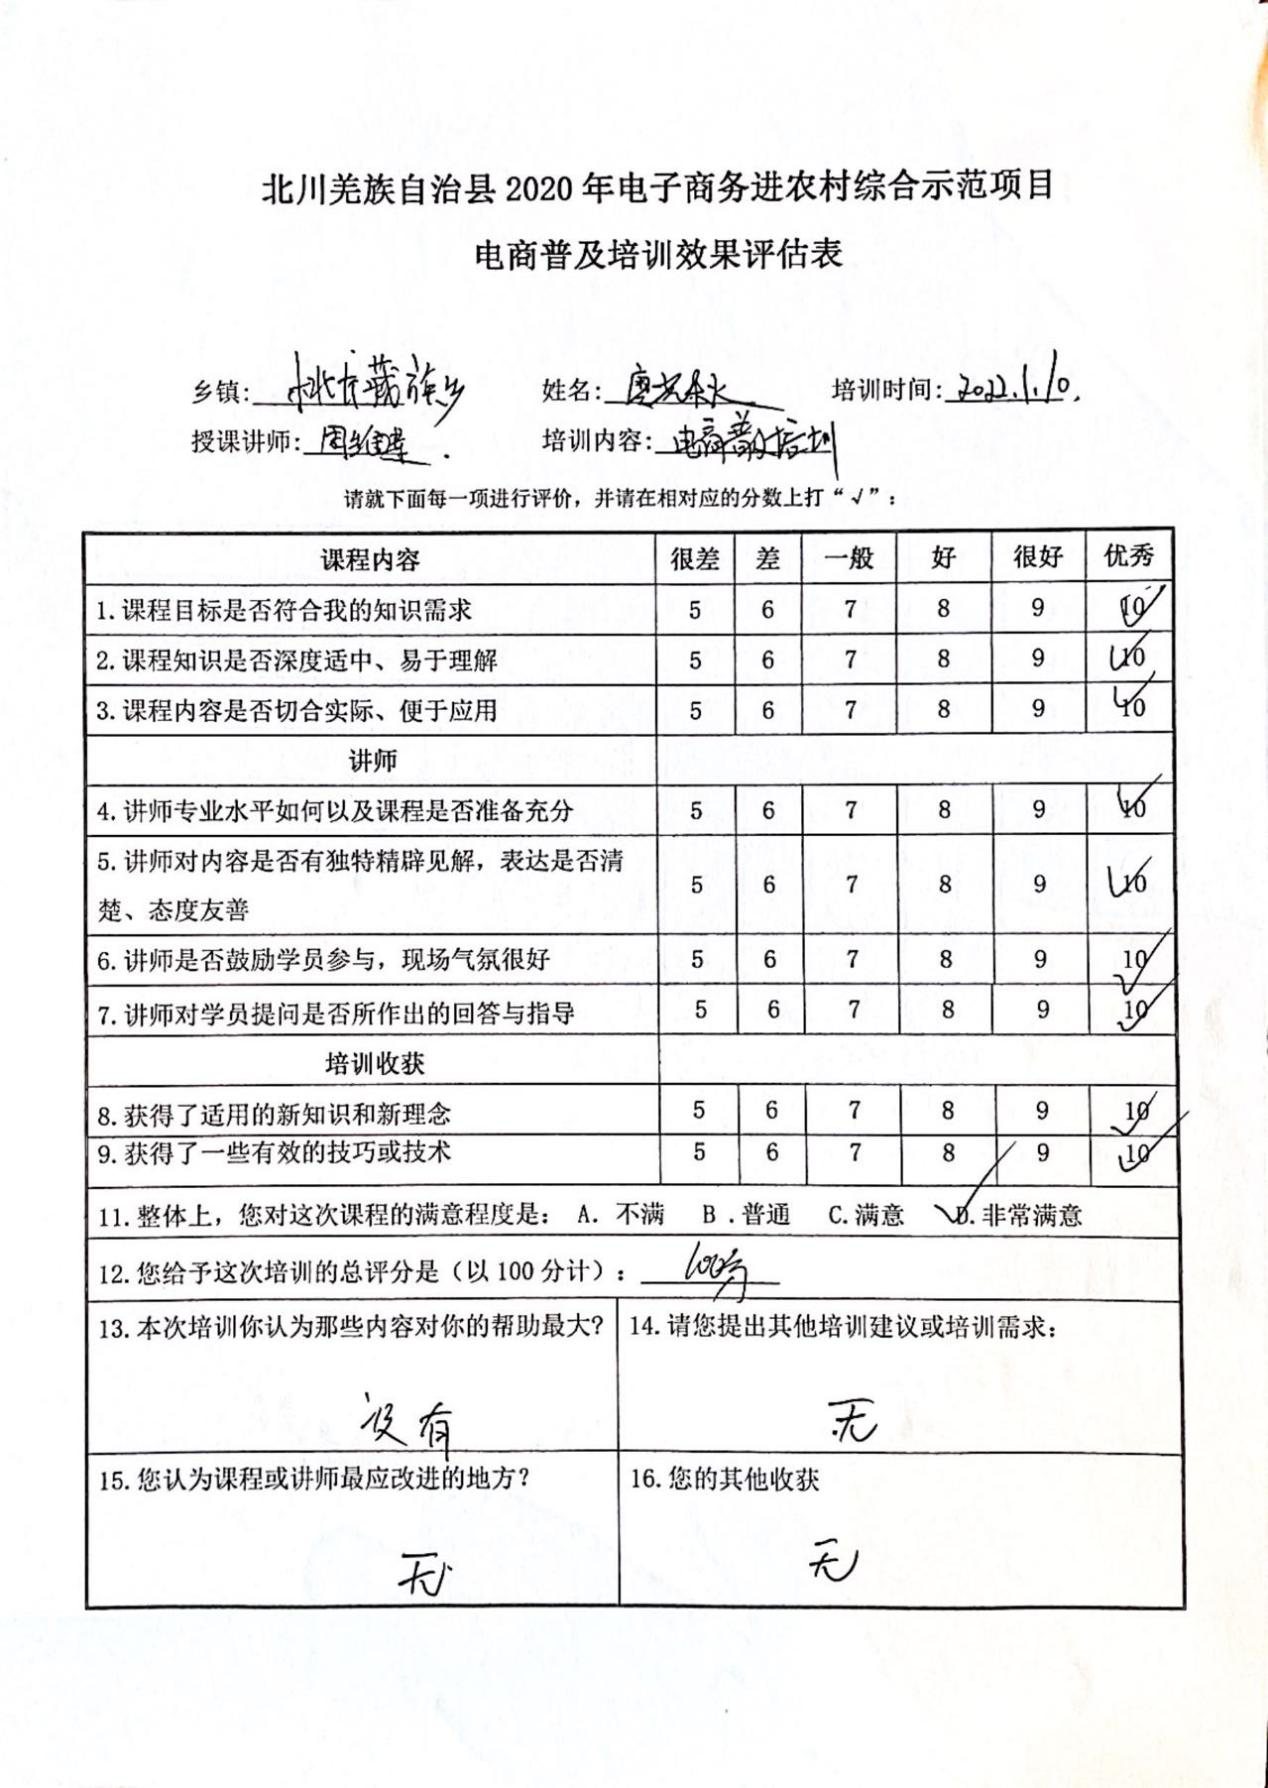 北川羌族自治县 2020 年电子商务进农村综合示范项目
电商普及培训效果评估表
乡镇: 桃龙藏族乡 姓名: 廖 培训时间: 2022.1.10.
授课讲师: 周维建. 培训内容: 电商普及培训
请就下面每一项进行评价，并请在相对应的分数上打“√”：
课程内容 很差 差 一般 好 很好 优秀
1.课程目标是否符合我的知识需求 5 6 7 8 9 10
2.课程知识是否深度适中、易于理解 5 6 7 8 9 10
3.课程内容是否切合实际、便于应用 5 6 7 8 9 10
讲师
4.讲师专业水平如何以及课程是否准备充分 5 6 7 8 9 10
5.讲师对内容是否有独特精辟见解，表达是否清
楚、态度友善 5 6 7 8 9 10
6.讲师是否鼓励学员参与，现场气氛很好 5 6 7 8 9 10
7.讲师对学员提问是否所作出的回答与指导 5 6 7 8 9 10
培训收获
8.获得了适用的新知识和新理念 5 6 7 8 9 10
9.获得了一些有效的技巧或技术 5 6 7 8 9 10
11.整体上，您对这次课程的满意程度是： A. 不满 B .普通 C.满意 D.非常满意
12.您给予这次培训的总评分是（以 100 分计）: 100分
13.本次培训你认为那些内容对你的帮助最大?
没有
14.请您提出其他培训建议或培训需求:
无
15.您认为课程或讲师最应改进的地方？
无
16.您的其他收获
无